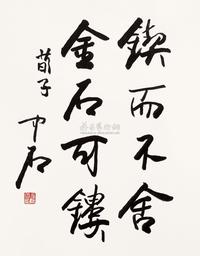 锲而不舍
金石可镂
荀子
中石